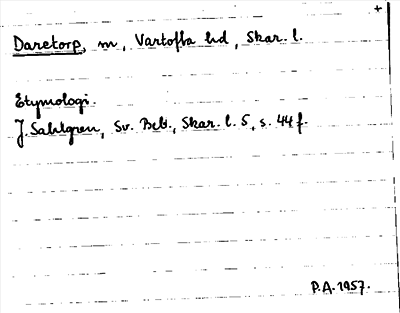 +
Daretorp, m, Vartofta hd, Skar. l.
Etymologi.
J. Sahlgren, Sv. Beb., Skar. l. 5, s. 44 f.
P.A. 1957.